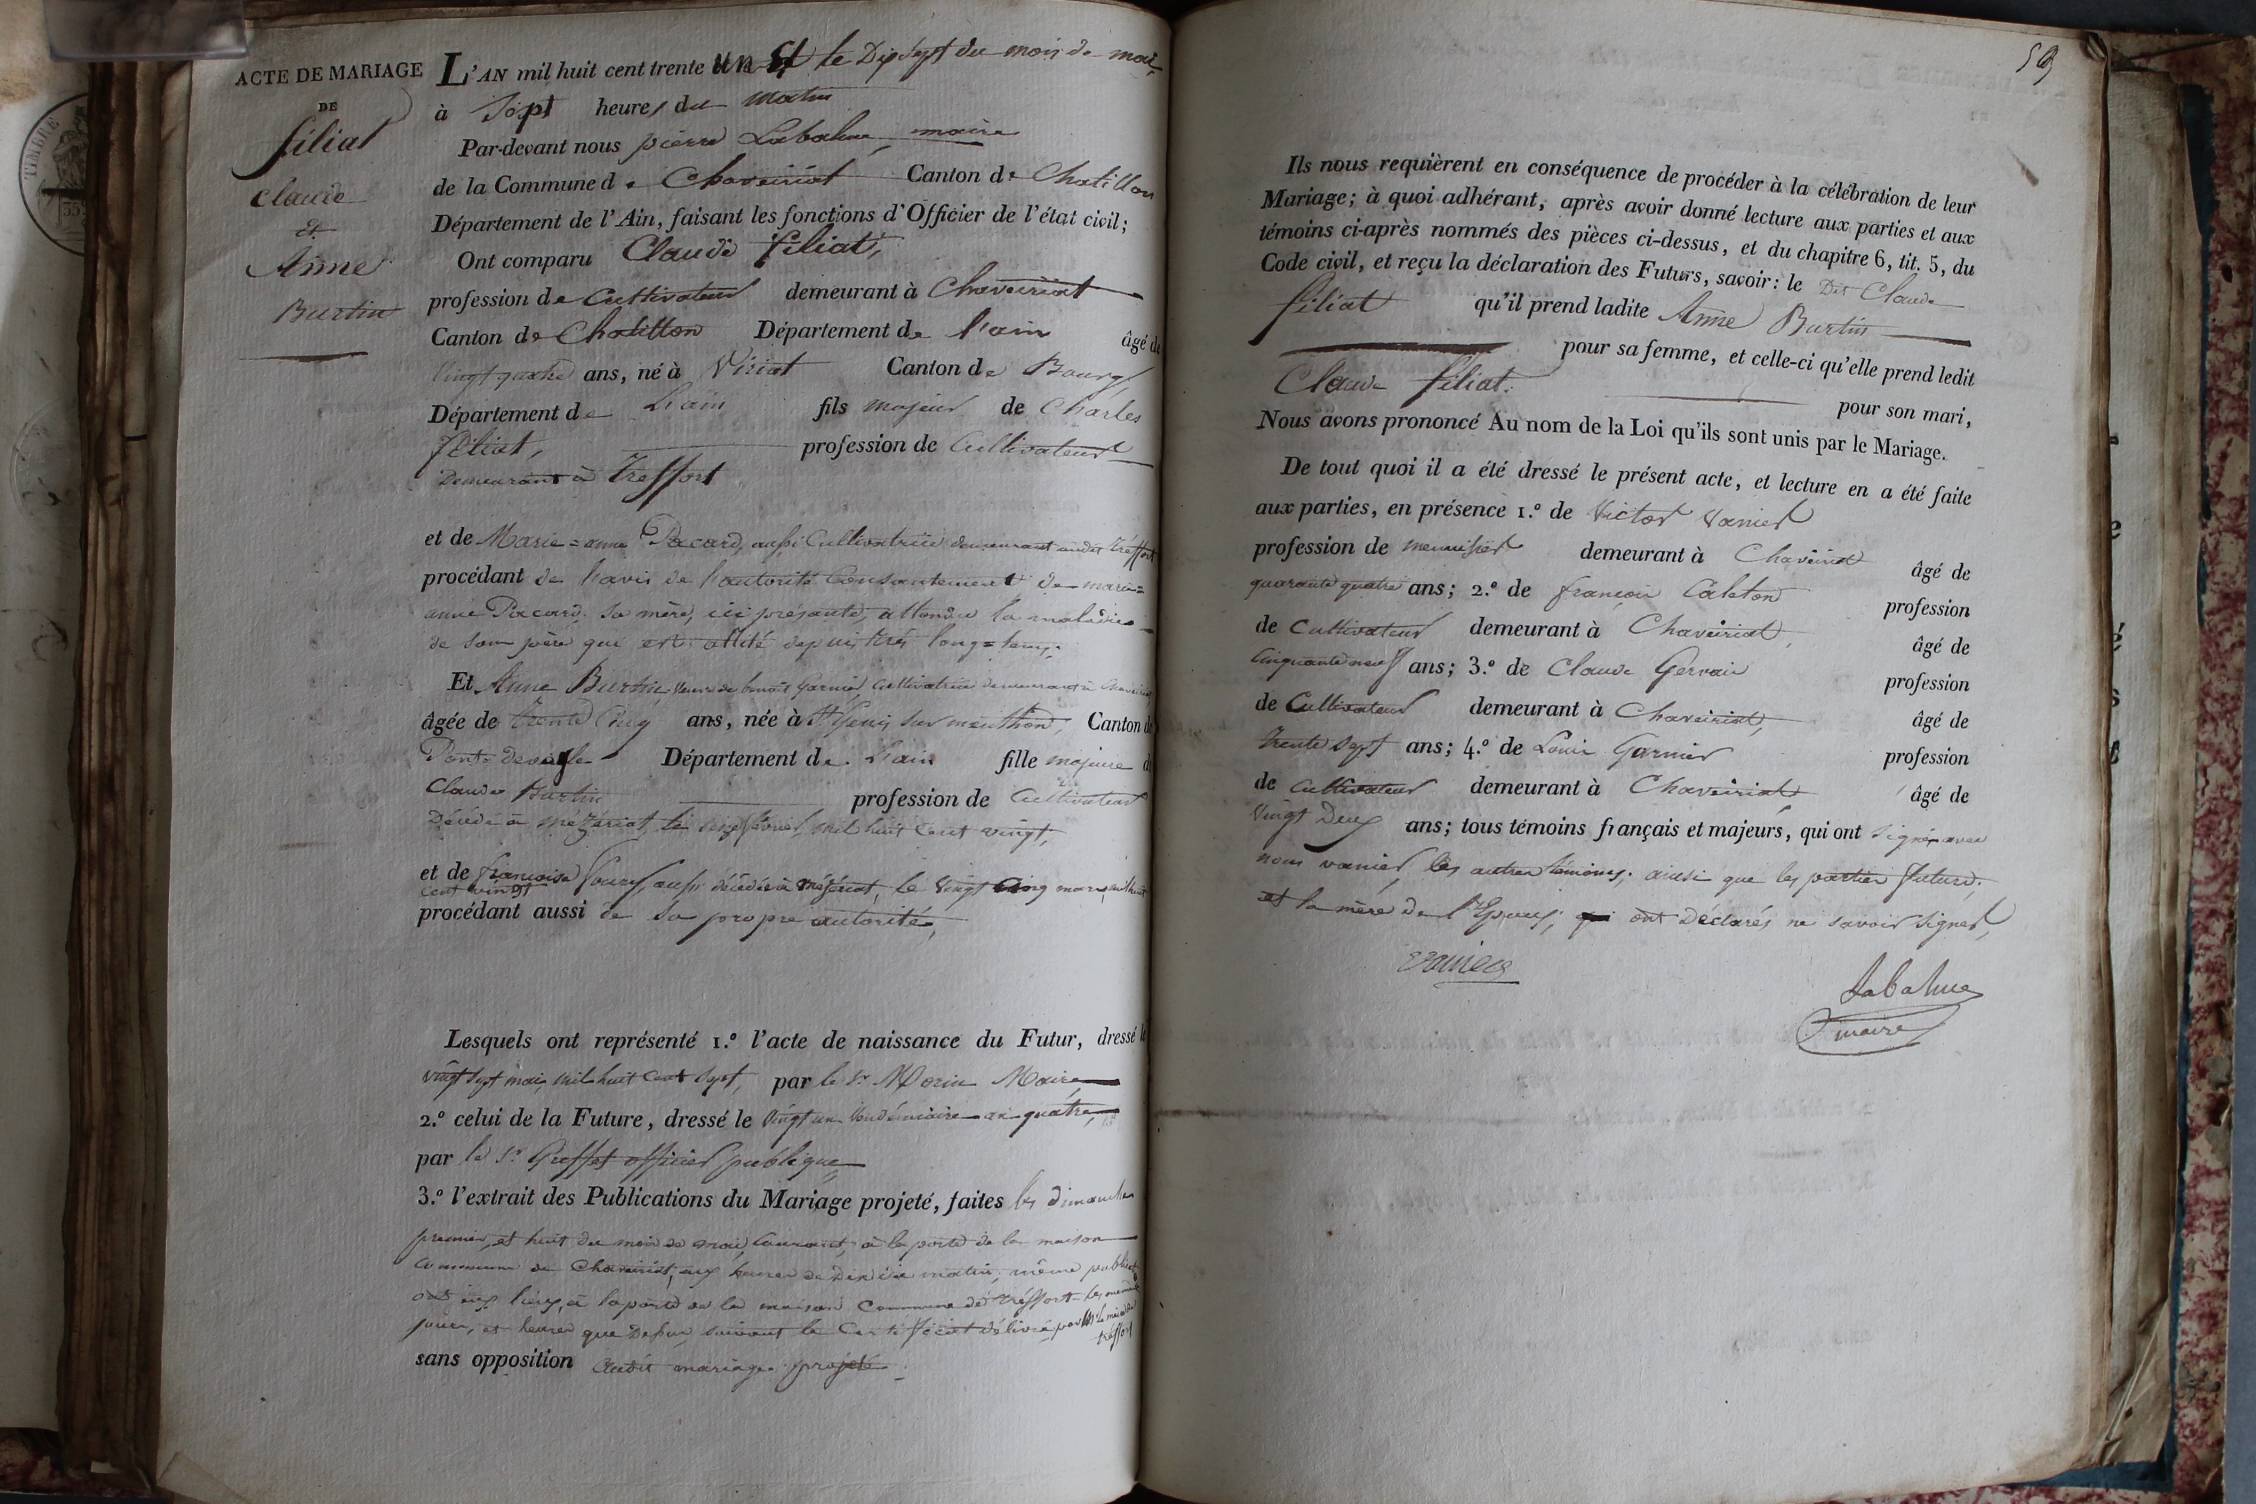 ACTE DE MARIAGE
DE
féliat
Claude
et
Anne
Burtin
TIMBRE
L'AN mil huit cent trente un et le Dix Sept du mois de mai,
à Sept heures du matin
Par-devant nous pierre Labalme, maire
de la Commune de Chaveiriat Canton de Chatillon
Département de l'Ain, faisant les fonctions d'Officier de l'état civil;
Ont comparu Claude féliat,
profession de Cultivateur demeurant à Chaveiriat
Canton de Chatillon Département de l'ain âgé de
vingt quatre ans, né à Viriat Canton de Bourg,
Département de L'ain fils majeur de Charles
féliat, profession de Cultivateur
Demeurant à Treffort
et de Marie=anne Pacard, aussi Cultivatrice demeurant audit Tréffort
procédant de l'avis de l'autorité Consantement de marie=
anne Pacard, Sa mère, ici présante, attendu la maladie
de son père qui est allité depuis très long=temps.
Et Anne Burtin, veuve de benoit Garnier, Cultivatrice demeurant à Chaveiriat
âgée de trente Cinq ans, née à St Genis sur menthon, Canton de
Pont-deveyle Département de L'ain fille majeure de
Claude Burtin profession de Cultivateur
Décédé à mézériat, le février mil huit Cent vingt,
et de françoise aussi décédée à mézériat, le vingt Cinq mars mil huit
cent vingt
procédant aussi de Sa propre autorité,
Lesquels ont représenté 1.º l'acte de naissance du Futur, dressé le
vingt Sept mai, mil huit Cent Sept, par le Sr Morin Maire
2.º celui de la Future, dressé le vingt un Vendémiaire an quatre,
par le Sr Greffet officier publique,
3.º l'extrait des Publications du Mariage projeté, faites les dimanches
premier, et huit du mois de mai, Courant, à la porte de la maison
Commune de Chaveiriat, aux heures de Dix du matin, même publication
ont eux lieux, à la porte de la maison Commune de Tréffort les mêmes
jours, et heures que Dessus suivant le Certificat délivré par Mr le maire de
tréffort
sans opposition audit mariage projeté.
59
Ils nous requièrent en conséquence de procéder à la célébration de leur
Mariage; à quoi adhérant, après avoir donné lecture aux parties et aux
témoins ci-après nommés des pièces ci-dessus, et du chapitre 6, tit. 5, du
Code civil, et reçu la déclaration des Futurs, savoir: le Dit Claude
féliat qu'il prend ladite Anne Burtin
pour sa femme, et celle-ci qu'elle prend ledit
Claude féliat. pour son mari,
Nous avons prononcé Au nom de la Loi qu'ils sont unis par le Mariage.
De tout quoi il a été dressé le présent acte, et lecture en a été faite
aux parties, en présence 1.º de Victor Vanier
profession de menuisier demeurant à Chaveiriat âgé de
quarante quatre ans; 2.º de françois Caleton profession
de Cultivateur demeurant à Chaveiriat, âgé de
Cinquante neuf ans; 3.º de Claude Gervais profession
de Cultivateur demeurant à Chaveiriat, âgé de
trente Sept ans; 4.º de Louis Garnier profession
de Cultivateur demeurant à Chaveiriat, âgé de
vingt Deux ans; tous témoins français et majeurs, qui ont signé avec
nous vanier, les autres témoins; ainsi que les parties future,
et la mère de l'Epoux; qui ont Déclarés ne savoir signer,
vanier
Labalme
maire